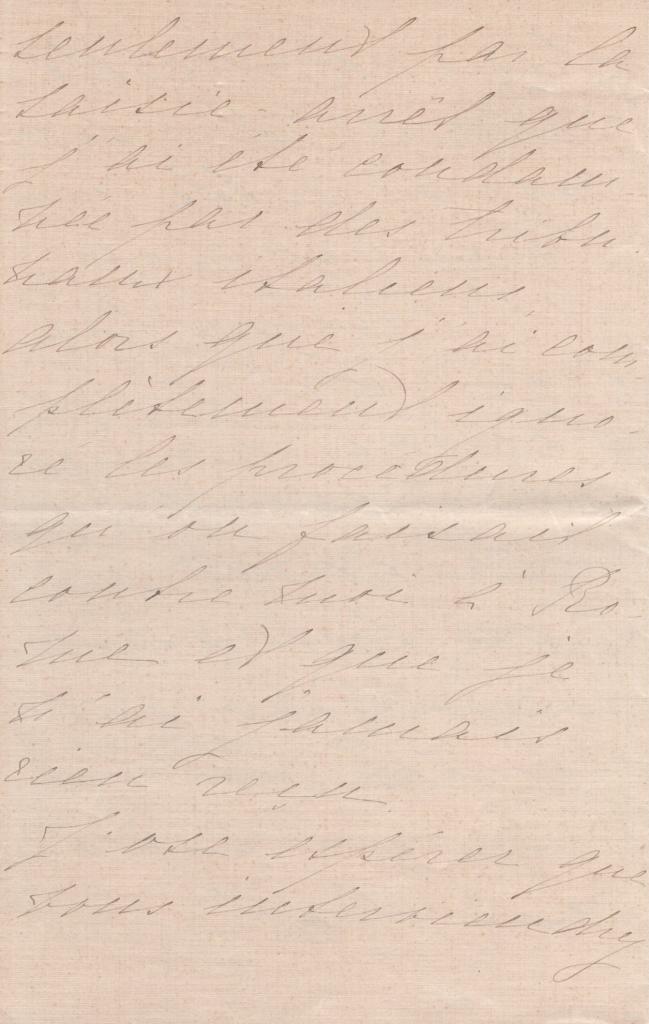 seulement par la
saisie-arrêt que
j'ai été condam-
née par des tribu-
naux italiens,
alors que j'ai com-
plètement igno-
ré les procédures
qu'on faisait
contre moi à Ro-
me et que je
n'ai jamais
rien reçu.
J'ose espérer que
vous interviendrez